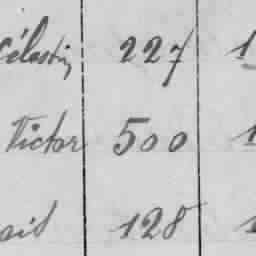 Célestin 227 1
Victor 500 1
128 1